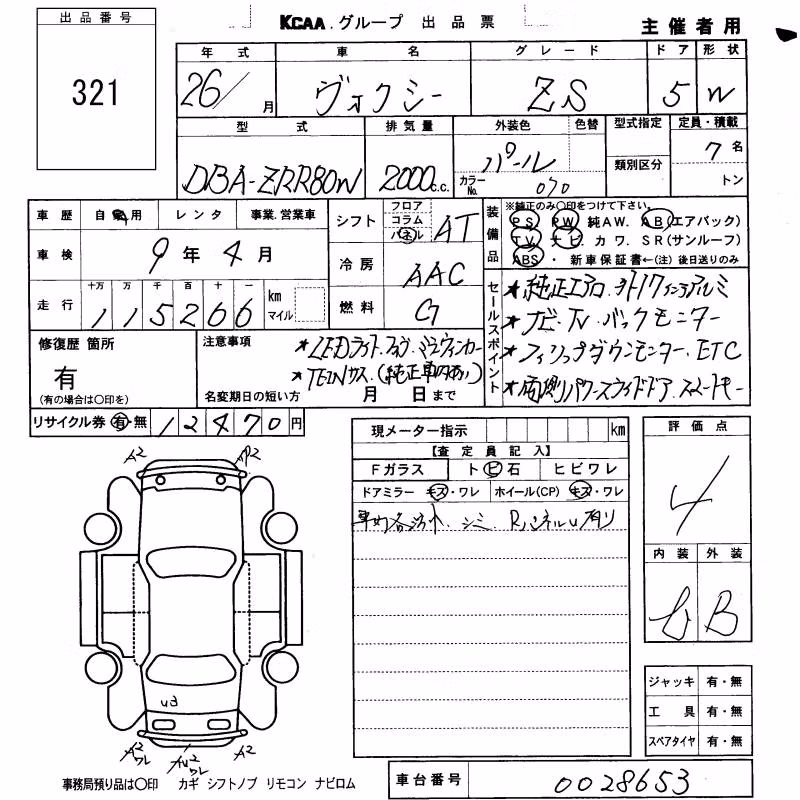 出品番号
321
KCAA.グループ 出品票
主催者用
年式 車名 グレード ドア 形状
26/ 月 ヴォクシー ZS 5 W
型式 排気量 外装色 色替 型式指定 定員・積載
DBA-ZRR80W 2000c.c. パール 類別区分 7名
カラーNo. 070 トン
車歴 自家用 レンタ 事業.営業車
車検 9年4月
走行 十万 万 千 百 十 一
115266 km マイル
シフト フロア コラム パネル AT
冷房 AAC
燃料 G
装備品
※純正のみ○印をつけて下さい。
PS PW 純AW. AB(エアバック)
TV ナビ カワ. SR(サンルーフ)
ABS ・ 新車保証書←(注) 後日送りのみ
セールスポイント
★純正エアロ
★ナビ・TV・バックモニター
★フィリップダウンモニター.ETC
★両側パワースライドドア スマートキー
修復歴 箇所
有
(有の場合は○印を)
注意事項
★LEDライト
★TEIN
名変期日の短い方 月 日まで
リサイクル券 有・無 12470円
現メーター指示 km
【査定員記入】
Fガラス トビ石 ヒビワレ
ドアミラー キズ・ワレ ホイール(CP) キズ・ワレ
シミ.
評価点
4
内装 外装
B
A2
A2
A2
ワレ
ワレ
A2
ジャッキ 有・無
工具 有・無
スペアタイヤ 有・無
事務局預り品は○印 カギ シフトノブ リモコン ナビロム
車台番号 0028653